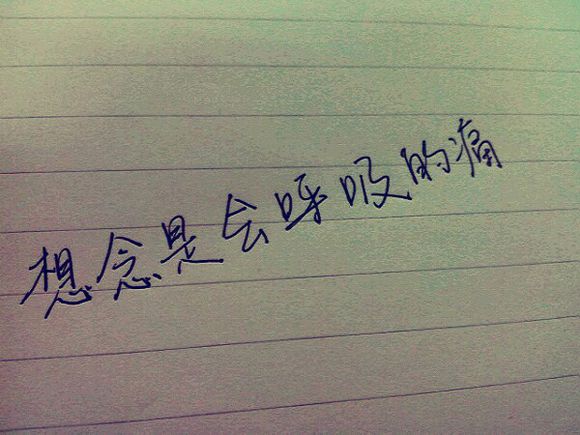 想念是会呼吸的痛